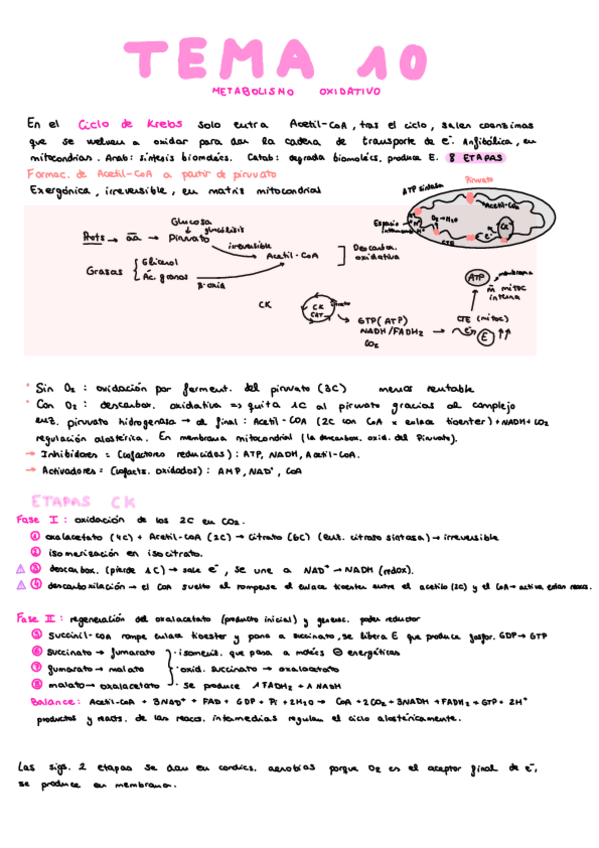 TEMA 10
METABOLISMO OXIDATIVO
En el Ciclo de Krebs solo entra Acetil-CoA, tras el ciclo, salen coenzimas
que se vuelven a oxidar para dar la cadena de transporte de e⁻. Anfibólica, en
mitocondrias. Anab: síntesis biomolécs. Catab: degrada biomolécs, produce E. 8 ETAPAS
Formac. de Acetil-CoA a partir de piruvato
Exergónica, irreversible, en matriz mitocondrial
ATP sintasa
Piruvato
Acetil-CoA
O₂→H₂O
Espacio
H⁺
CTE
e⁻
CK
Glucosa
↓ glucólisis
Prots → aa → Piruvato
irreversible
Acetil-CoA
Descarbox.
oxidativa
Grasas
Glicerol
Ác. grasos
β-oxid
CK
CK
CAT
citrato
GTP (ATP)
NADH/FADH₂
CO₂
CTE (mitoc)
E ↑↑
ATP
membrana
mitoc
interna
* Sin O₂: oxidación por ferment. del piruvato (3C) menos rentable
* Con O₂: descarbox. oxidativa => quita 1C al piruvato gracias al complejo
enz. piruvato hidrogenasa → al final: Acetil-COA (2C con CoA x enlace tioester) + NADH + CO₂
regulación alostérica. En membrana mitocondrial (la descarbox. oxid. del Piruvato).
→ Inhibidores = (cofactores reducidos): ATP, NADH, Acetil-CoA.
→ Activadores = (cofacts. oxidados): AMP, NAD⁺, CoA
ETAPAS CK
Fase I: oxidación de los 2C en CO₂.
① oxalacetato (4C) + Acetil-CoA (2C) → Citrato (6C) (enz. citrato sintasa) → irreversible
② isomerización en isocitrato.
③ descarbox. (pierde 1C) → sale e⁻, se une a NAD⁺ → NADH (redox).
④ descarboxilación → el CoA suelto al romperse el enlace tioester entre el acetilo (2C) y el CoA → activa estas reaccs.
Fase II: regeneración del oxalacetato (producto inicial) y poder reductor
⑤ Succinil-CoA rompe enlace tioester y pasa a succinato, se libera E que produce fosfor. GDP → GTP
⑥ succinato → fumarato
⑦ fumarato → malato
⑧ malato → oxalacetato
· isomeriz. que pasa a molécs ⊖ energéticas
· oxid. succinato → oxalacetato
· se produce 1 FADH₂ + 1 NADH
Balance: Acetil-CoA + 3NAD⁺ + FAD + GDP + Pi + 2H₂O → CoA + 2CO₂ + 3NADH + FADH₂ + GTP + 2H⁺
productos y reacts. de las reaccs. intermedias regulan el ciclo alostéricamente.
Las sigs. 2 etapas se dan en condics. aerobias porque O₂ es el aceptor final de e⁻,
se produce en membrana.